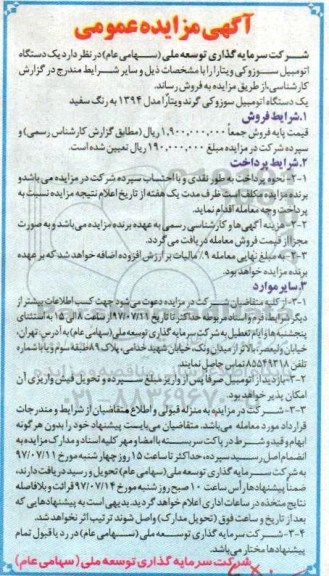 آگهی مزایده عمومی
شرکت سرمایه گذاری توسعه ملی (سهامی عام) در نظر دارد یک دستگاه
اتومبیل سوزوکی ویتارا را با مشخصات ذیل و سایر شرایط مندرج در گزارش
کارشناسی، از طریق مزایده به فروش رساند.
یک دستگاه اتومبیل سوزوکی گرند ویتارا مدل ۱۳۹۴ به رنگ سفید
۱.شرایط فروش
قیمت پایه فروش جمعاً ۱,۹۰۰,۰۰۰,۰۰۰ ریال (مطابق گزارش کارشناس رسمی) و
سپرده شرکت در مزایده مبلغ ۱۹۰,۰۰۰,۰۰۰ ریال تعیین شده است.
۲.شرایط پرداخت
۲-۱-نحوه پرداخت به طور نقدی و با احتساب سپرده شرکت در مزایده می باشد و
برنده مزایده مکلف است ظرف مدت یک هفته از تاریخ اعلام نتیجه مزایده نسبت به
پرداخت وجه معامله اقدام نماید.
۲-۲-هزینه آگهی ها و کارشناسی رسمی به عهده برنده مزایده می باشد و به صورت
مجزا از قیمت فروش معامله دریافت می گردد.
۲-۳-به مبلغ نهایی معامله ۹٪ مالیات بر ارزش افزوده اضافه خواهد شد که بر عهده
برنده مزایده خواهد بود.
۳.سایر موارد
۳-۱-از کلیه متقاضیان شرکت در مزایده دعوت می شود جهت کسب اطلاعات بیشتر از
دیگر شرایط، فرم و اسناد مربوطه حداکثر تا تاریخ ۹۷/۰۷/۱۱ از ساعت ۸ الی ۱۵ به استثنای
پنجشنبه ها و ایام تعطیل به شرکت سرمایه گذاری توسعه ملی (سهامی عام) به آدرس: تهران،
خیابان ولیعصر، بالاتر از میدان ونک، خیابان شهید خدامی، پلاک ۸۹ طبقه سوم و یا با شماره
تلفن ۸۵۵۴۹۳۱۸ تماس حاصل نمایند.
۳-۲-بازدید از اتومبیل صرفاً پس از واریز مبلغ سپرده و تحویل فیش واریزی آن
امکان پذیر خواهد بود.
۳-۳-شرکت در مزایده به منزله قبولی و اطلاع متقاضیان از شرایط و مندرجات
قرارداد مورد معامله می باشد. متقاضیان می بایست پیشنهاد خود را بدون هر گونه
ابهام و قید و شرط در پاکت سربسته با امضا و مهر کلیه اسناد و مدارک مزایده به
انضمام اصل رسید سپرده، حداکثر تا ساعت ۱۵ روز چهار شنبه مورخ ۹۷/۰۷/۱۱
به شرکت سرمایه گذاری توسعه ملی (سهامی عام) تحویل و رسید دریافت دارند،
ضمناً پیشنهادها رأس ساعت ۱۰ صبح روز شنبه مورخ ۹۷/۰۷/۱۴ قرائت و بلافاصله
نتایج متخذه در ساعات اداری اعلام خواهد گردید. بدیهی است به پیشنهادهایی که
بعد از تاریخ و ساعت فوق (تحویل مدارک) واصل شوند ترتیب اثر نخواهد شد.
۳-۴-شرکت سرمایه گذاری توسعه ملی (سهامی عام) در رد یا قبول تمام
پیشنهادها مختار می باشد.
شرکت سرمایه گذاری توسعه ملی (سهامی عام)